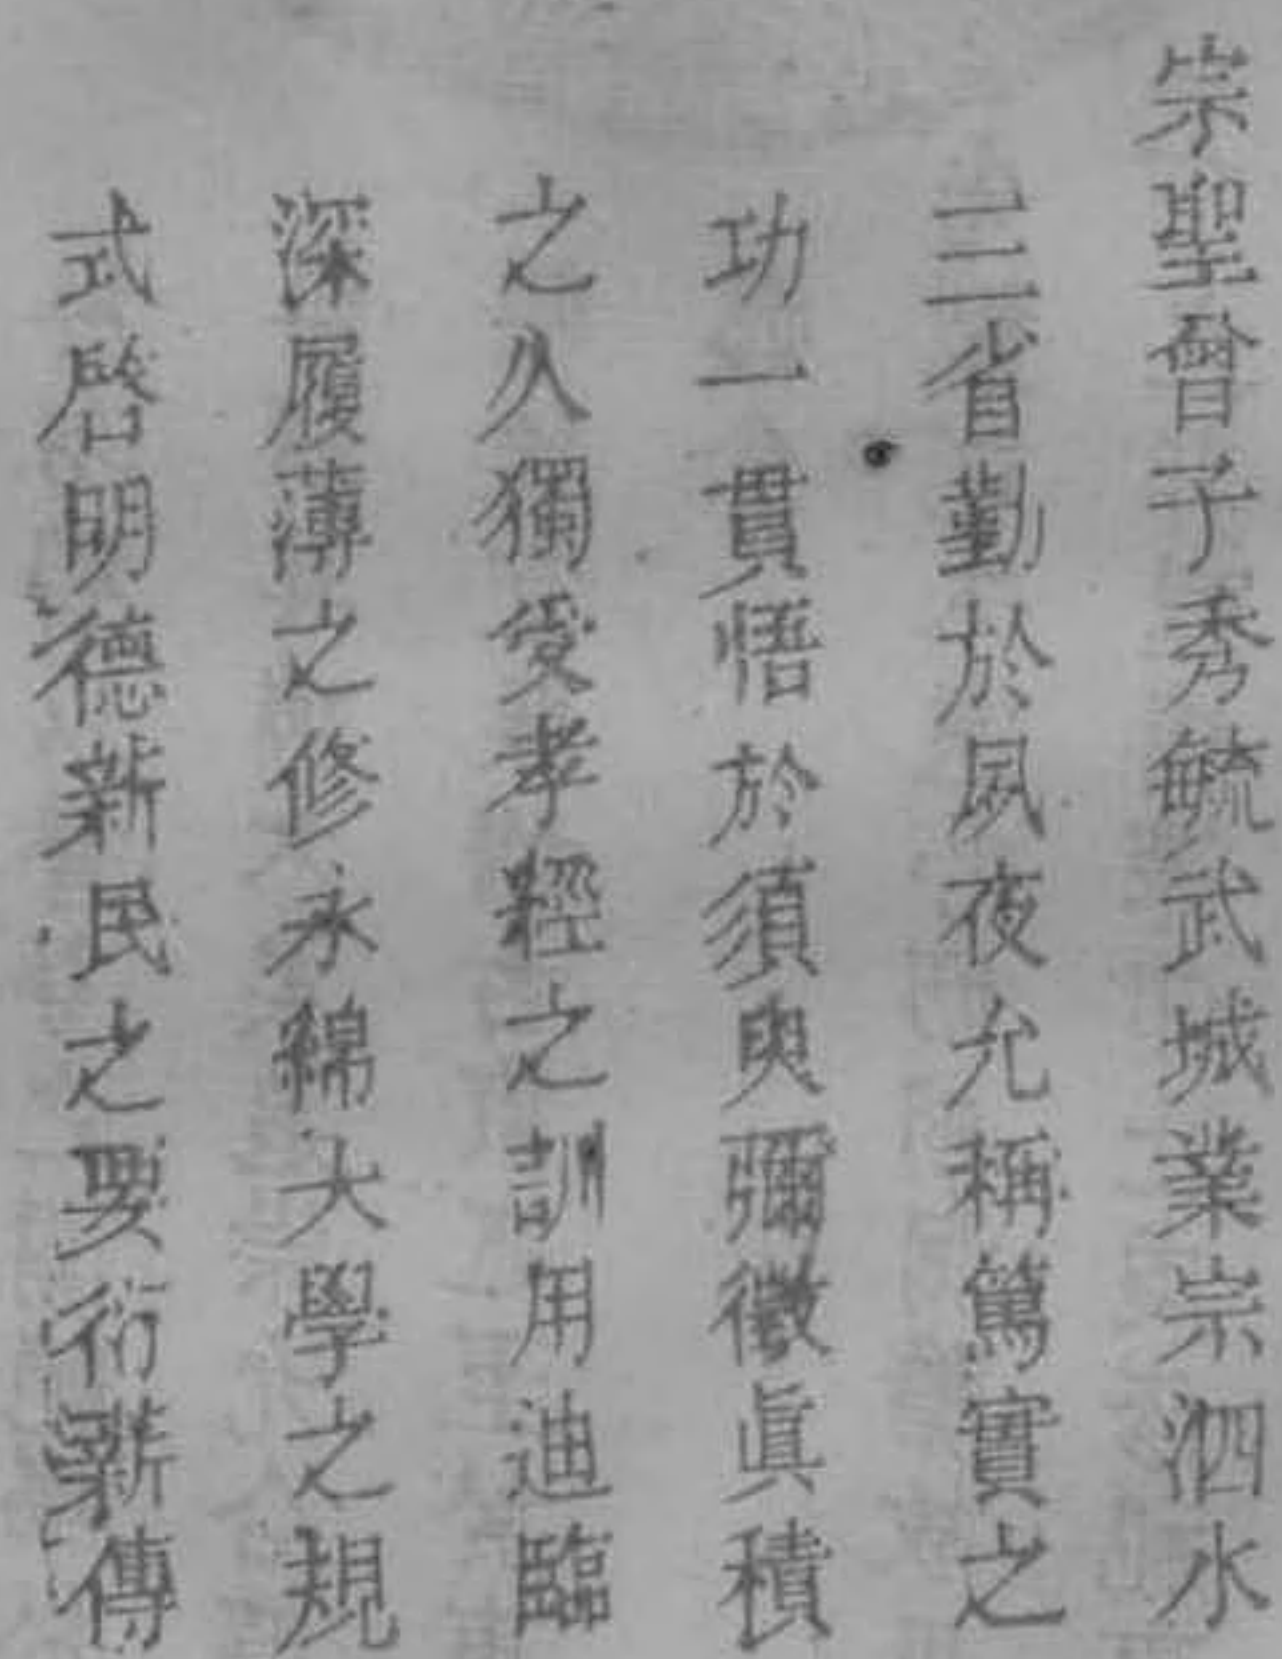 宗聖曾子秀毓武城業宗泗水
三省勤於夙夜允稱篤實之
功一貫悟於須臾彌徵眞積
之久獨受孝經之訓用迪臨
深履薄之修永綿大學之規
式啓明德新民之要衍薪傳